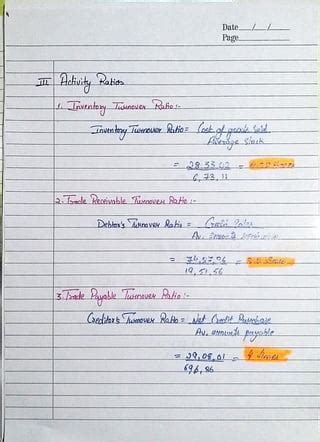 Date __/__/__
Page
III Activity Ratios
1. Inventory Turnover Ratio:-
Inventory Turnover Ratio = Cost of goods sold
Average Stock
= 28,33,02 =
6,73,11
2. Trade Receivable Turnover Ratio:-
Debtor's Turnover Ratio = Credit Sales
Av. amounts
= 74,57,96 =
19,51,56
3. Trade Payable Turnover Ratio:-
Creditor's Turnover Ratio = Net Credit Purchase
Av. amounts payable
= 29,08,01 = 4 times
696,86